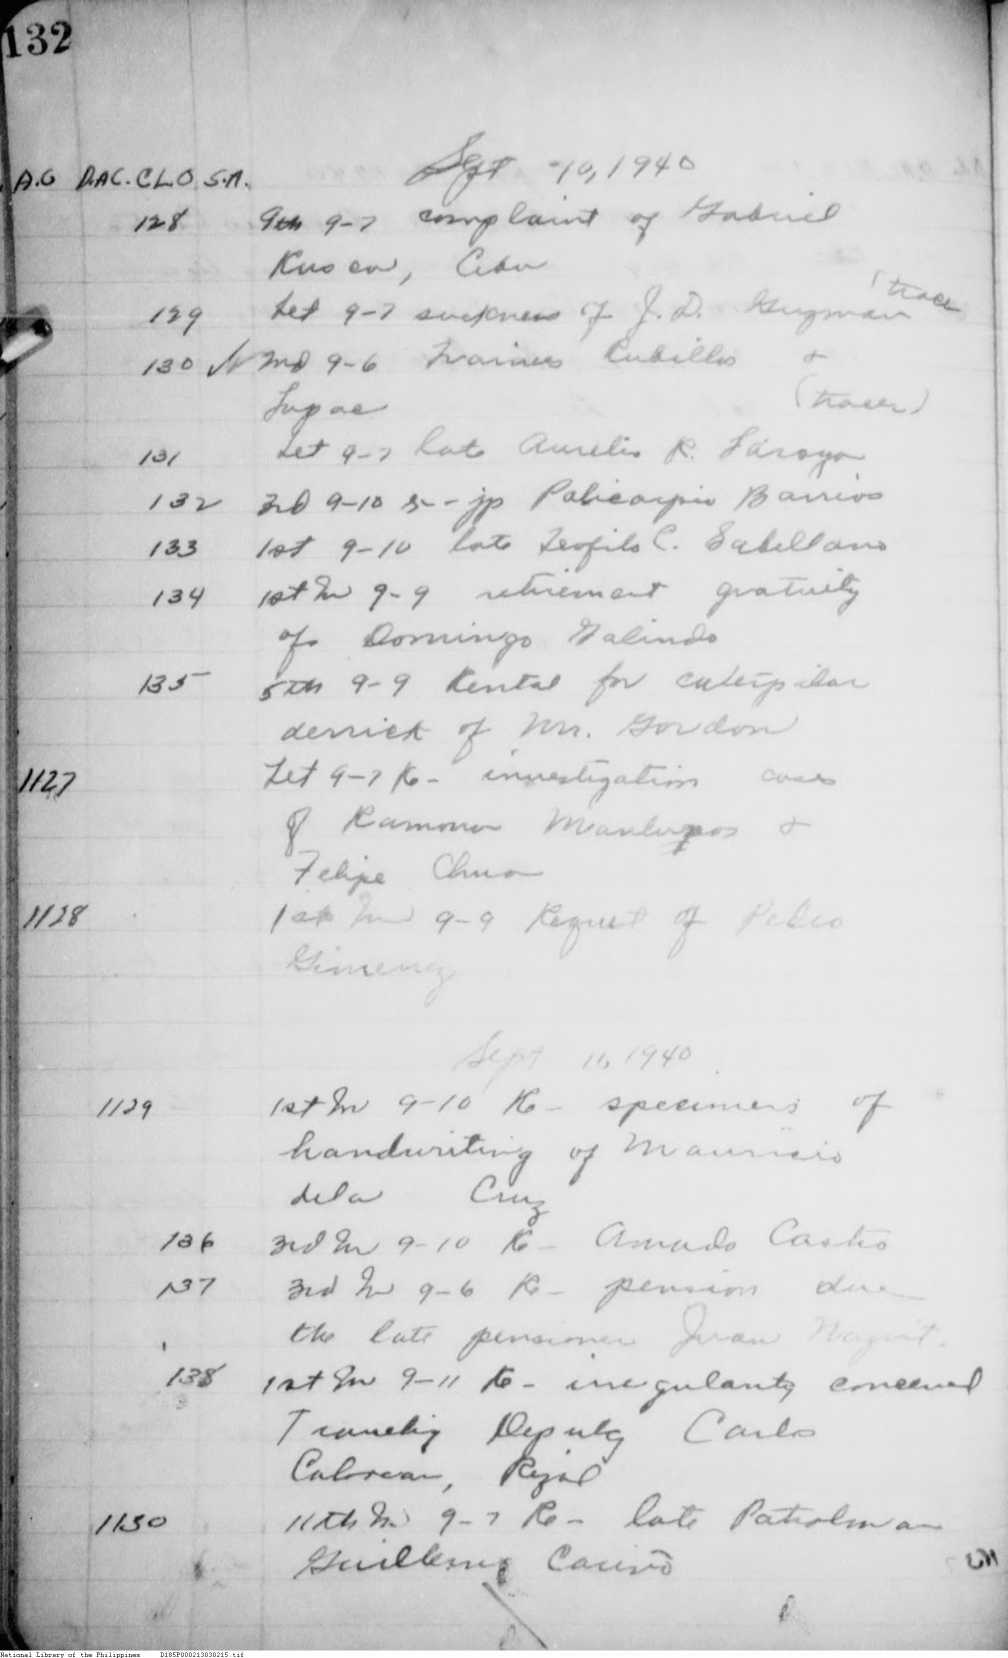 132
Sept 10, 1940
A.G D.AC. CLO S.A.
128 9th 9-7 complaint of Gabriel
Cebu
129 Let 9-7 sickness of J. D. Guzman (tracer
130 2nd 9-6 Trainees Cubillo &
Lupac (tracer)
131 Let 9-7 late Aurelio R.
132 3rd 9-10 jp Policarpio Barrios
133 1st 9-10 late Teofilo C. Sabellano
134 1st In 9-9 retirement gratuity
of Domingo Galindo
135 5th 9-9 Rental for caterpilar
derrick of Mr. Gordon
1127 Let 9-7 Re- investigation cases
of Ramona &
Felipe Chua
1128 1st In 9-9 Request of Pedro
Gimenez
Sept 11, 1940
1129 1st In 9-10 Re- specimens of
handwriting of Mauricio
dela Cruz
136 3rd In 9-10 Re- Amado Castro
137 3rd In 9-6 Re- pension due
the late pensioner Juan
138 1st In 9-11 Re- irregularity concerned
Traveling Deputy Carlos
Caloocan, Rizal
1130 11th In 9-7 Re- late Patrolman
Guillermo Cariño
National Library of the Philippines D185P000213030215.tif